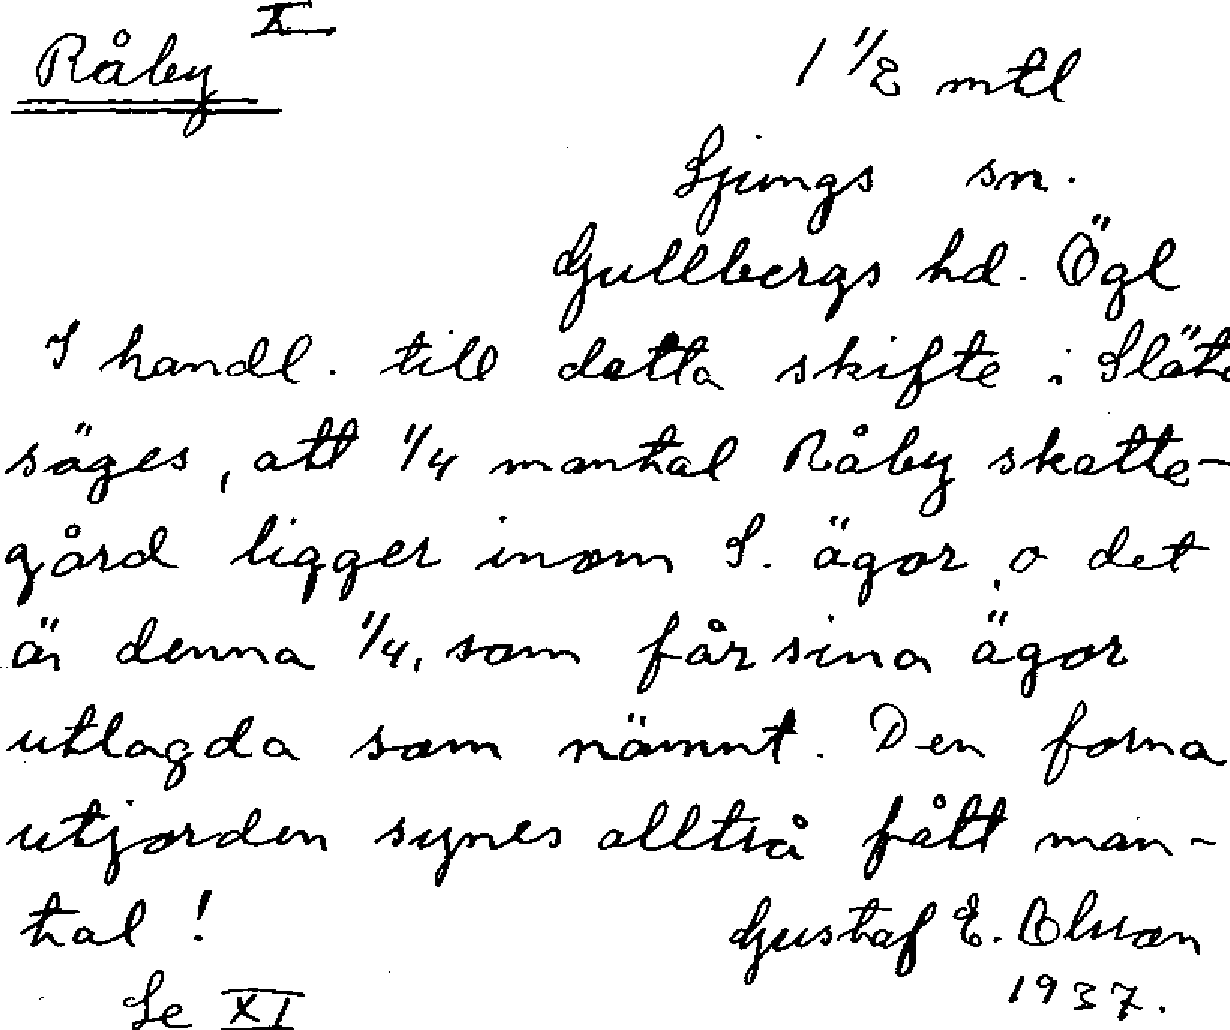 Råby X 1 1/2 mtl
Ljungs sn.
Gullbergs hd. Ögl
I handl. till detta skifte i Slät
säges, att 1/4 mantal Råby skatte-
gård ligger inom S. ägor, o det
är denna 1/4, som får sina ägor
utlagda som nämnt. Den forna
utjorden synes alltså fått man-
tal! Gustaf E. Olsson
Se XI 1937.